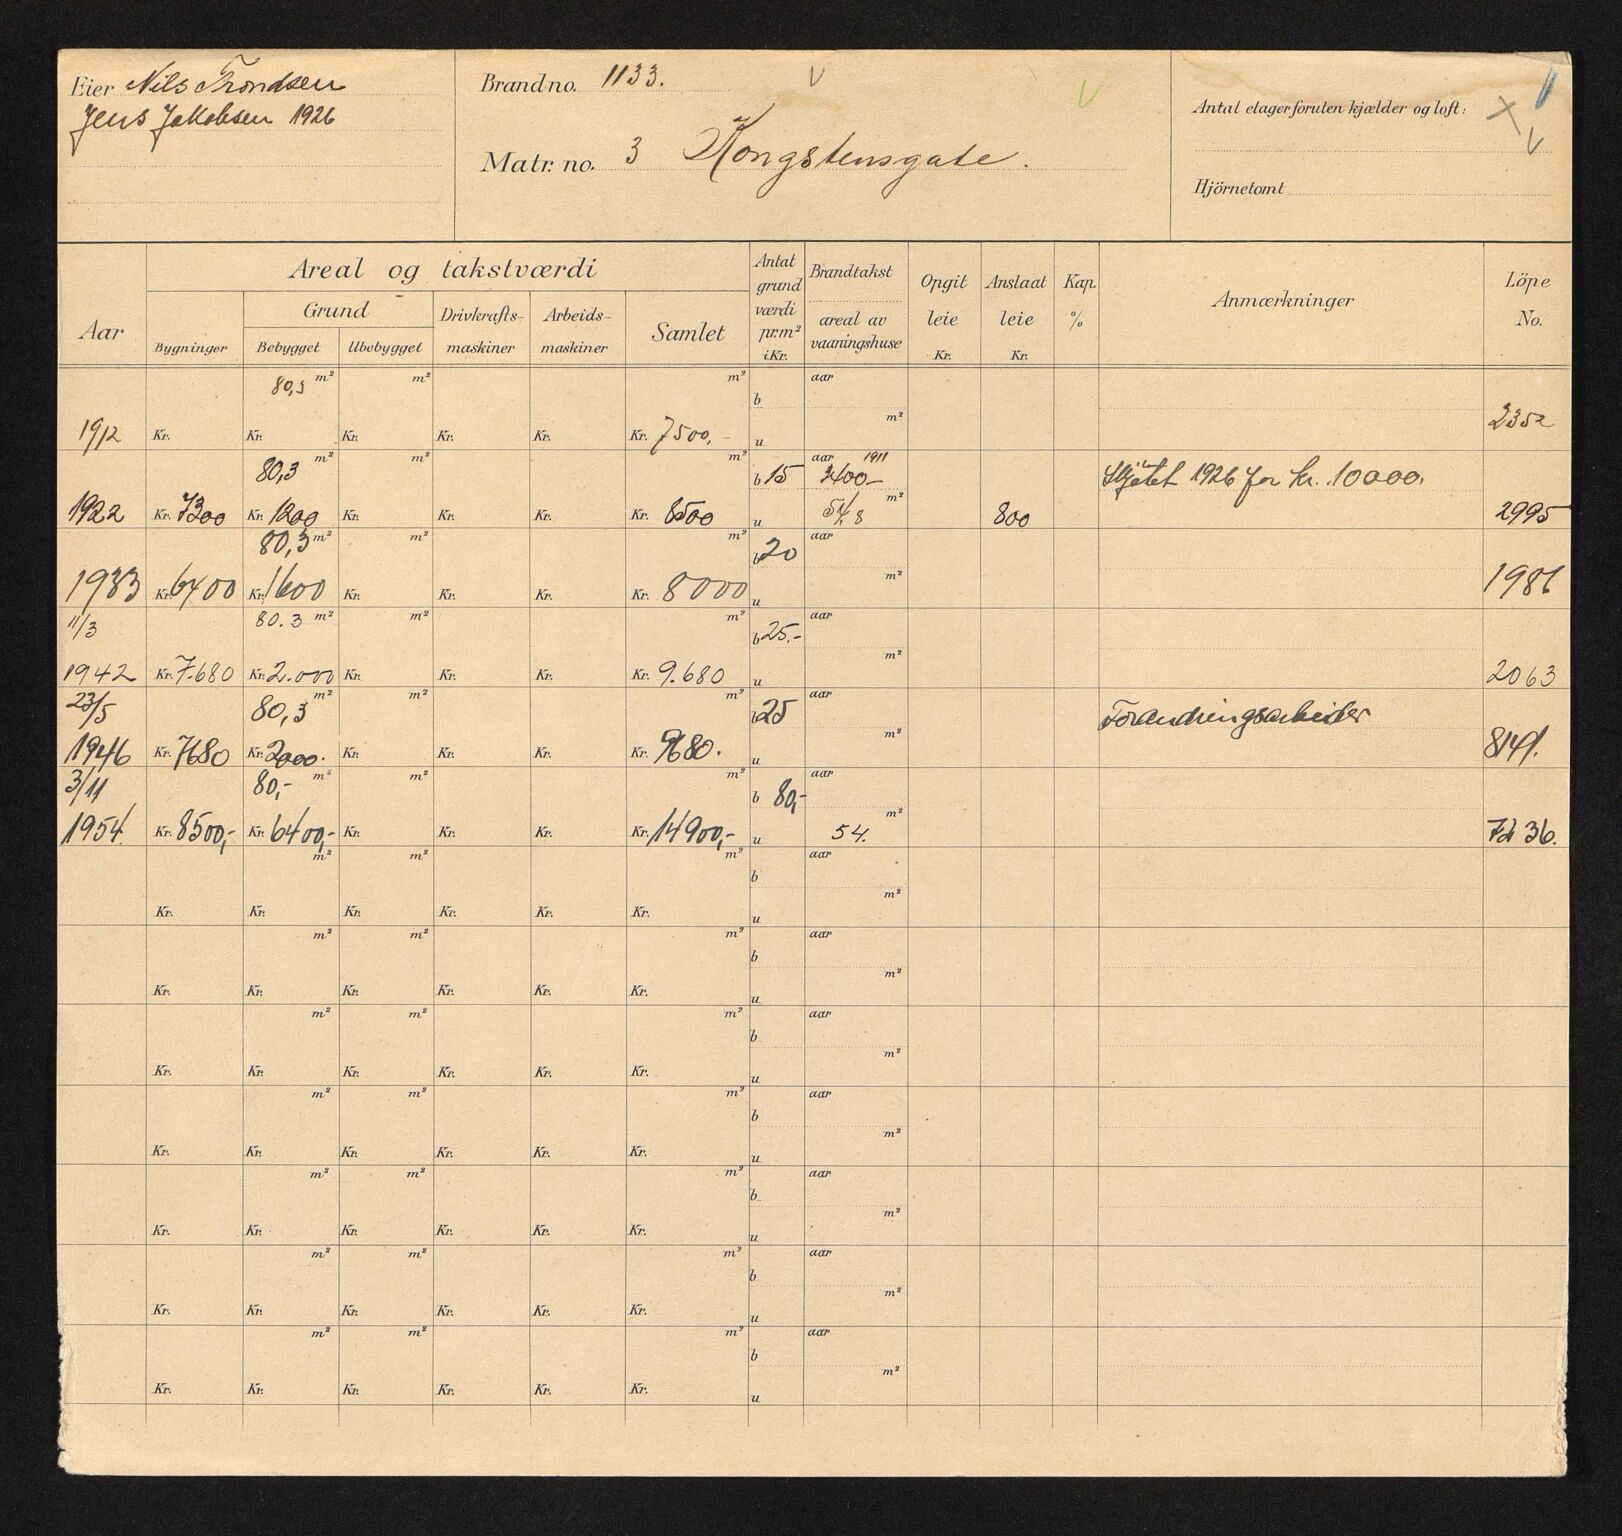 Eier Nils Trondsen
Jens Jakobsen 1926
Brandno. 1133.
Matr. no. 3 Kongstensgate.
Antal etager foruten kjælder og loft:
Hjörnetomt
Aar
Areal og takstværdi
Bygninger
Grund
Bebygget Ubebygget
Drivkrafts-maskiner
Arbeids-maskiner
Samlet
Antat grund værdi pr.m² i Kr.
Brandtakst
areal av vaaningshuse
Opgit leie Kr.
Anslaat leie Kr.
Kap. %
Anmærkninger
Löpe No.
80,3 m² m² m² b aar
1912 Kr. Kr. Kr. Kr. Kr. Kr. 7500,- u m² 2352
80,3 m² m² m² b 15 aar 1911 3400- Skjötet 1926 for kr. 10000.
1922 Kr. 7300 Kr. 1200 Kr. Kr. Kr. Kr. 8500 u m² 800 2995
80,3 m² m² m² b 20 aar
1933 Kr. 6400 Kr. 1600 Kr. Kr. Kr. Kr. 8000 u m² 1986
11/3 80.3 m² m² m² b 25.- aar
1942 Kr. 7.680 Kr. 2.000 Kr. Kr. Kr. Kr. 9.680 u m² 2063
23/5 80,3 m² m² m² b 25 aar Forandringsarbeider
1946 Kr. 7680 Kr. 2000. Kr. Kr. Kr. Kr. 9680. u m² 8141.
3/11 80,- m² m² m² b 80,- aar
1954. Kr. 8500,- Kr. 6400,- Kr. Kr. Kr. Kr. 14900,- u 54. m² 36.
m² m² m² b aar
Kr. Kr. Kr. Kr. Kr. Kr. u m²
m² m² m² b aar
Kr. Kr. Kr. Kr. Kr. Kr. u m²
m² m² m² b aar
Kr. Kr. Kr. Kr. Kr. Kr. u m²
m² m² m² b aar
Kr. Kr. Kr. Kr. Kr. Kr. u m²
m² m² m² b aar
Kr. Kr. Kr. Kr. Kr. Kr. u m²
m² m² m² b aar
Kr. Kr. Kr. Kr. Kr. Kr. u m²
m² m² m² b aar
Kr. Kr. Kr. Kr. Kr. Kr. u m²